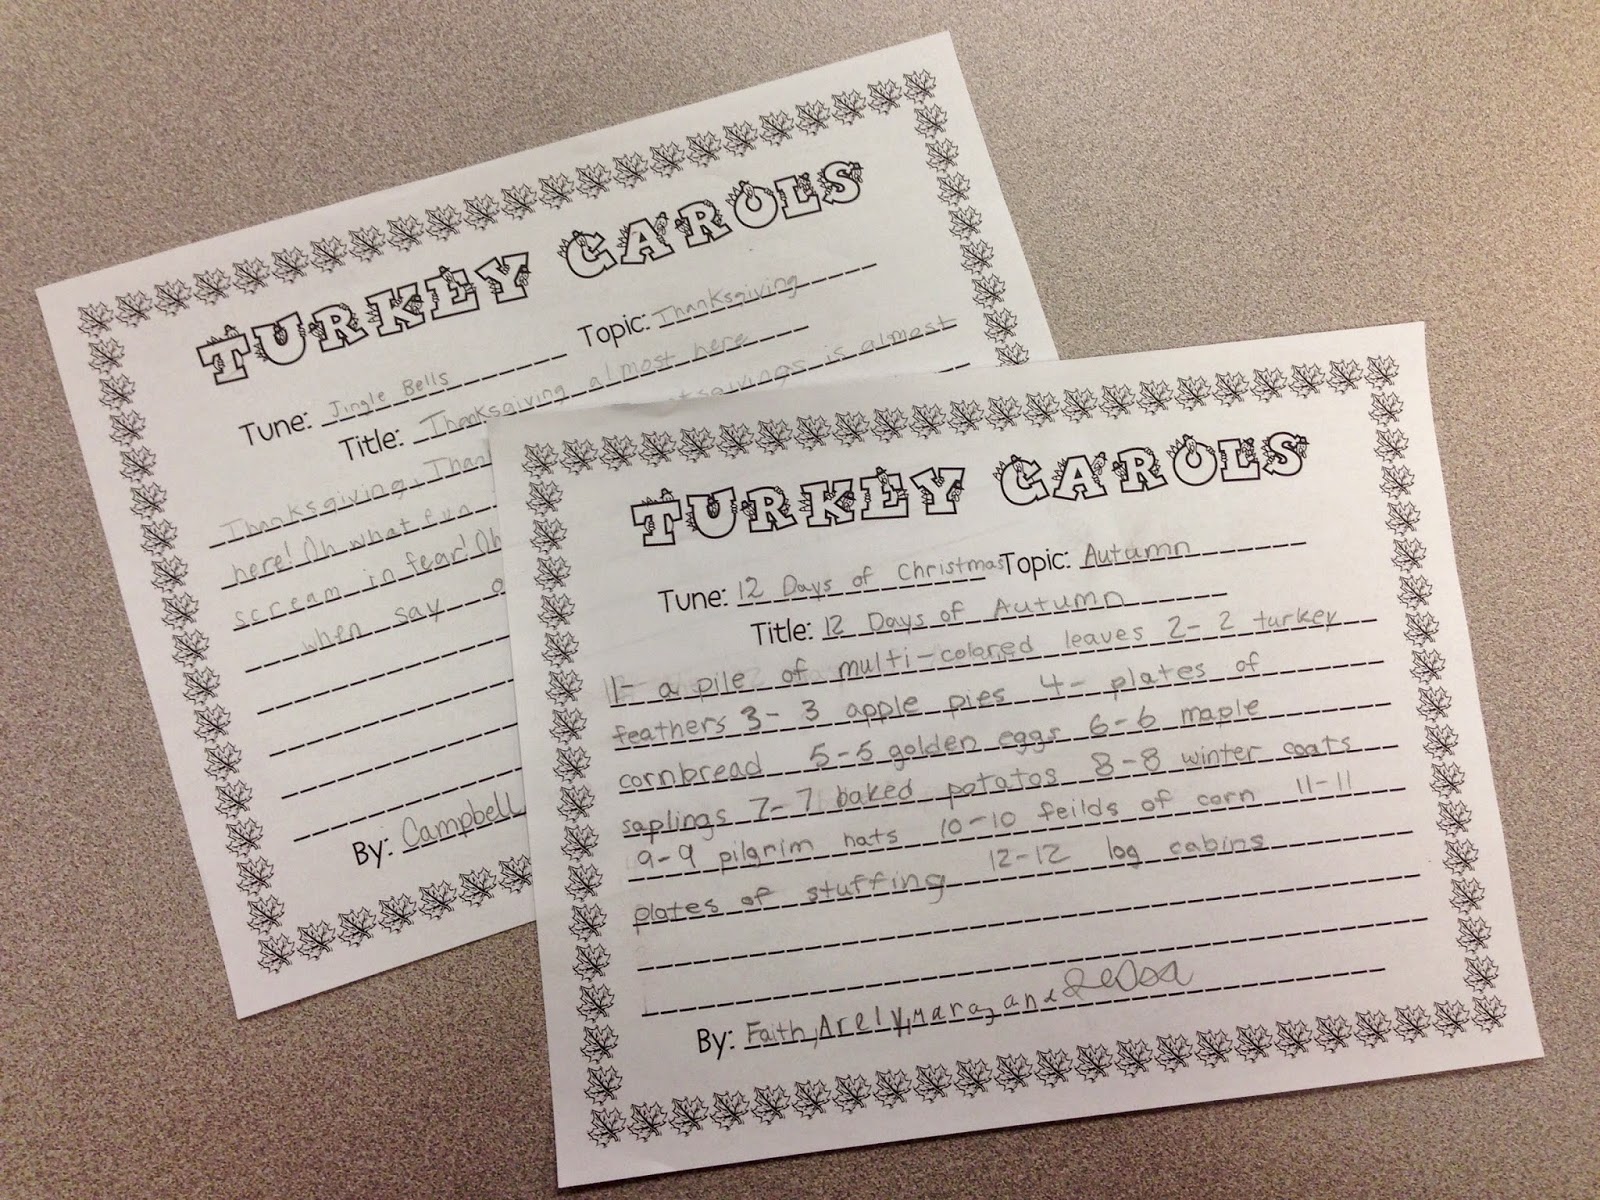 TURKEY CAROLS
Tune: Jingle Bells Topic: Thanksgiving
Title: Thanksgiving almost here
Thanksgiving, is almost
here! Oh what fun
scream in fear! Oh
when say
By: Campbell
TURKEY CAROLS
Tune: 12 Days of Christmas Topic: Autumn
Title: 12 Days of Autumn
1- a pile of multi-colored leaves 2- 2 turkey
feathers 3- 3 apple pies 4- plates of
cornbread 5-5 golden eggs 6-6 maple
saplings 7-7 baked potatos 8-8 winter coats
9-9 pilgrim hats 10-10 feilds of corn 11-11
plates of stuffing 12-12 log cabins
By: Faith, Arely, Mara, and